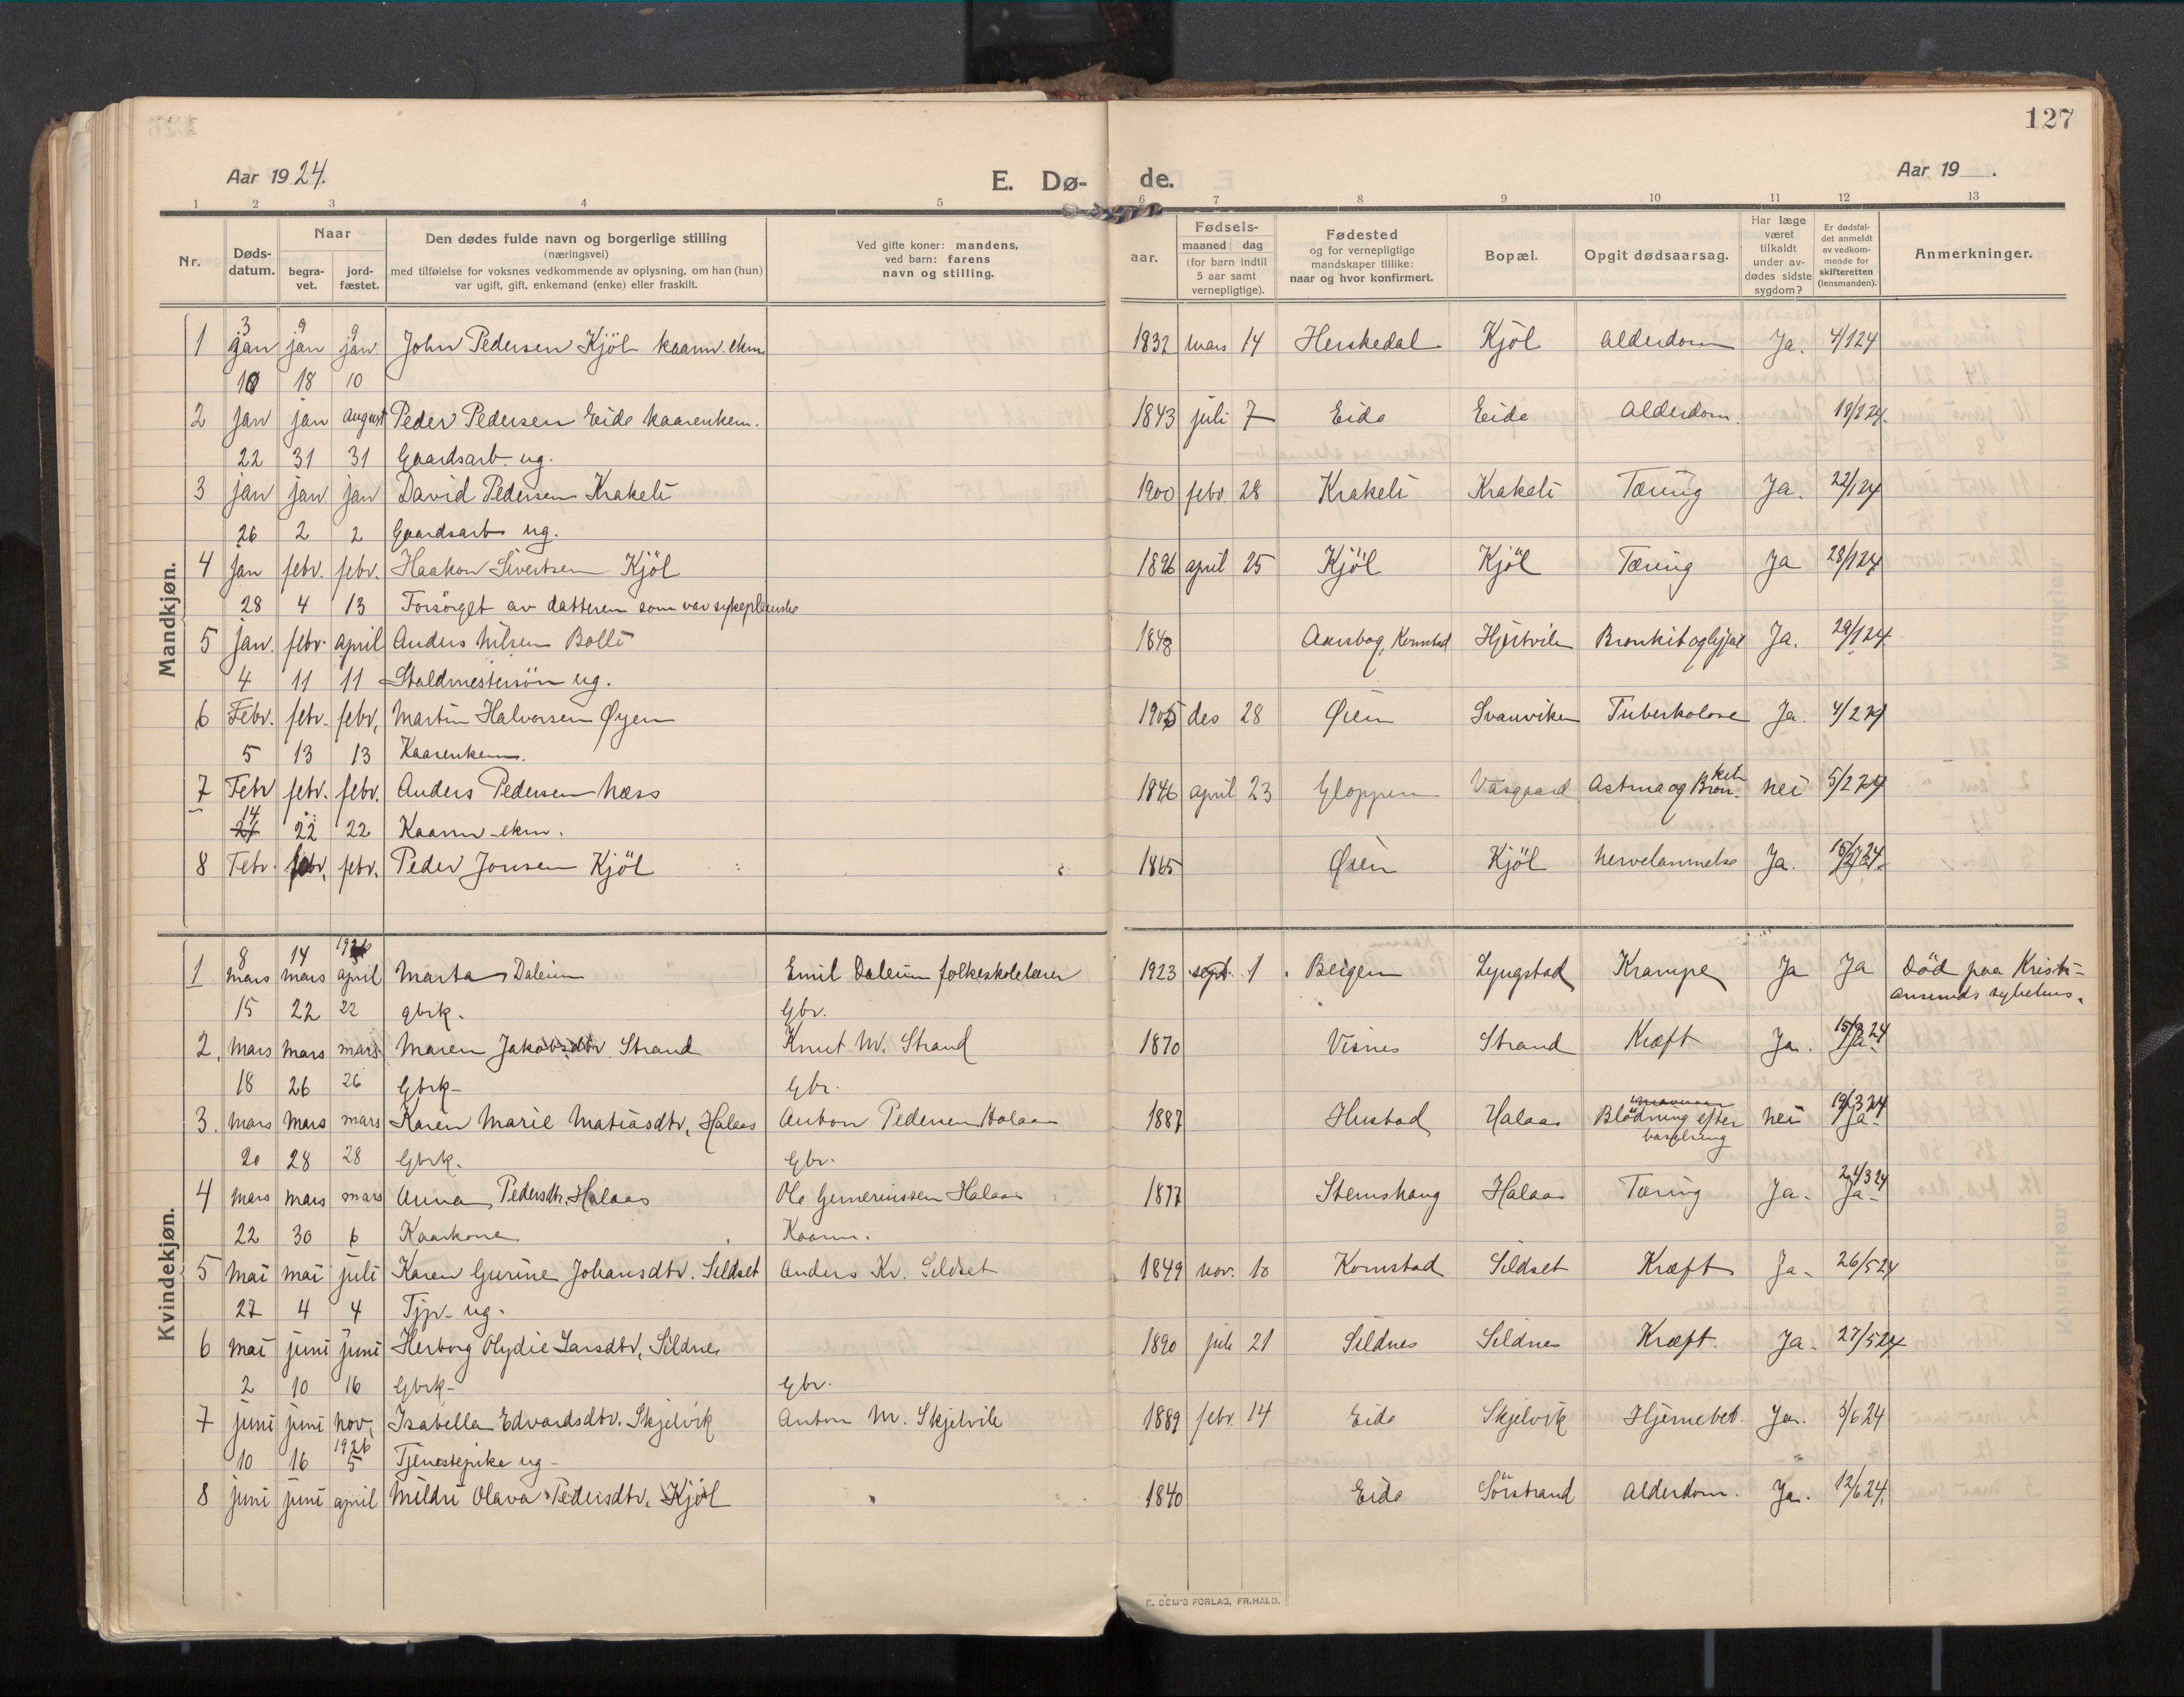 127
Aar 1924.
E. Dø-
de.
Aar 19 .
1 2 3 4 5 6 7 8 9 10 11 12 13
Nr. Døds-datum. Naar begra-vet. jord-fæstet. Den dødes fulde navn og borgerlige stilling (næringsvei) med tilføielse for voksnes vedkommende av oplysning, om han (hun) var ugift, gift, enkemand (enke) eller fraskilt. Ved gifte koner: mandens, ved barn: farens navn og stilling. Fødsels- aar. maaned dag (for barn indtil 5 aar samt vernepligtige). Fødested og for vernepligtige mandskaper tillike: naar og hvor konfirmert. Bopæl. Opgit dødsaarsag. Har læge været tilkaldt under av-dødes sidste sygdom? Er dødsfal-det anmeldt av vedkom-mende for skifteretten (lensmanden). Anmerkninger.
Mandkjøn.
3 9 9
1 jan jan jan John Pedersen Kjöl kaarm. ekm. 1832 mars 14 Herskedal Kjöl Alderdom Ja. 4/1 24
10 18 10
2 Jan jan august Peder Pedersen Eide kaarenkem. 1843 juli 7 Eide Eide Alderdom.
22 31 31 Gaardsarb. ug.
3 jan jan jan David Pedersen Krakeli 1900 febr. 28 Krakeli Krakeli Tæring Ja. 22/1 24
26 2 2 Gaardsarb ug.
4 Jan febr. febr. Haakon Sivertsen Kjöl april 25 Kjöl Kjöl Tæring Ja 28/1 24
28 4 13 Forsörget av datteren som var sykepleierske
5 jan. febr. april Anders Nilsen Bolli 1848 Ja. 29/1 24
4 11 11 ug.
6 Febr. febr. febr. Martin Halvorsen Øyen des 28 Øien Svanviken Tuberkolose Ja. 4/2 24
5 13 13 Kaarenkem.
7 Febr febr. febr. Anders Pedersen Næss 1846 april 23 Gloppen Vaagaard Astma og Bron-kit nei 5/2 24
14 22 22 Kaarm - ekm.
8 Febr. febr. febr. Peder Jonsen Kjöl 1865 Øien Kjöl Nervelammelse Ja.
Kvindekjøn.
8 14 1926
1 mars mars april Marta Daleim Emil Daleim folkeskolelærer 1923 sept. 1 Bergen Lyngstad Krampe Ja Ja Död paa Kristi-
ansunds sykehus.
15 22 22 gbrk. Gbr.
2. Mars Mars mars Maren Jakobsdtr Strand Knut M. Strand 1870 Visnes Strand Kræft Ja. 15/3 24 Ja.
18 26 26 Gbrk- Gbr.
3. Mars Mars mars Karen Marie Matiasdtr, Halaas Anton Pedersen Halaas 1887 Hustad Halaas Blödning efter barselseng nei 19/3 24 Ja.
20 28 28 Gbrk. Gbr.
4 Mars Mars mars Anna Pedersdtr. Halaas Ole Halaas 1877 Stemshaug Halaas Tæring Ja. 24/3 24 Ja.
22 30 6 Kaarkone Kaarm.
5 Mai mai juli Karen Gurine Johansdtr. Sildset Anders Kr. Sildset 1849 nov. 10 Kornstad Sildset Kræft Ja. 26/5 24
27 4 4 Tjp. ug.
6 Mai juni juni Herborg Olydie Larsdtr, Sildnes 1890 juli 21 Sildnes Sildnes Kræft. Ja. 27/5 24
2 10 16 Gbrk- Gbr.
7 juni juni nov, Isabella Edvardsdtr. Skjelvik Anton M. Skjelvik 1889 febr. 14 Eide Skjelvik Hjernebet. Ja. 3/6 24
1926
10 16 5 Tjenestepike ug-
8 juni juni april Mildri Olava Pedersdtr, Kjöl 1840 Eide Sörstrand Alderdom. Ja. 12/6 24.
E. SEM'S FORLAG, FR.HALD.